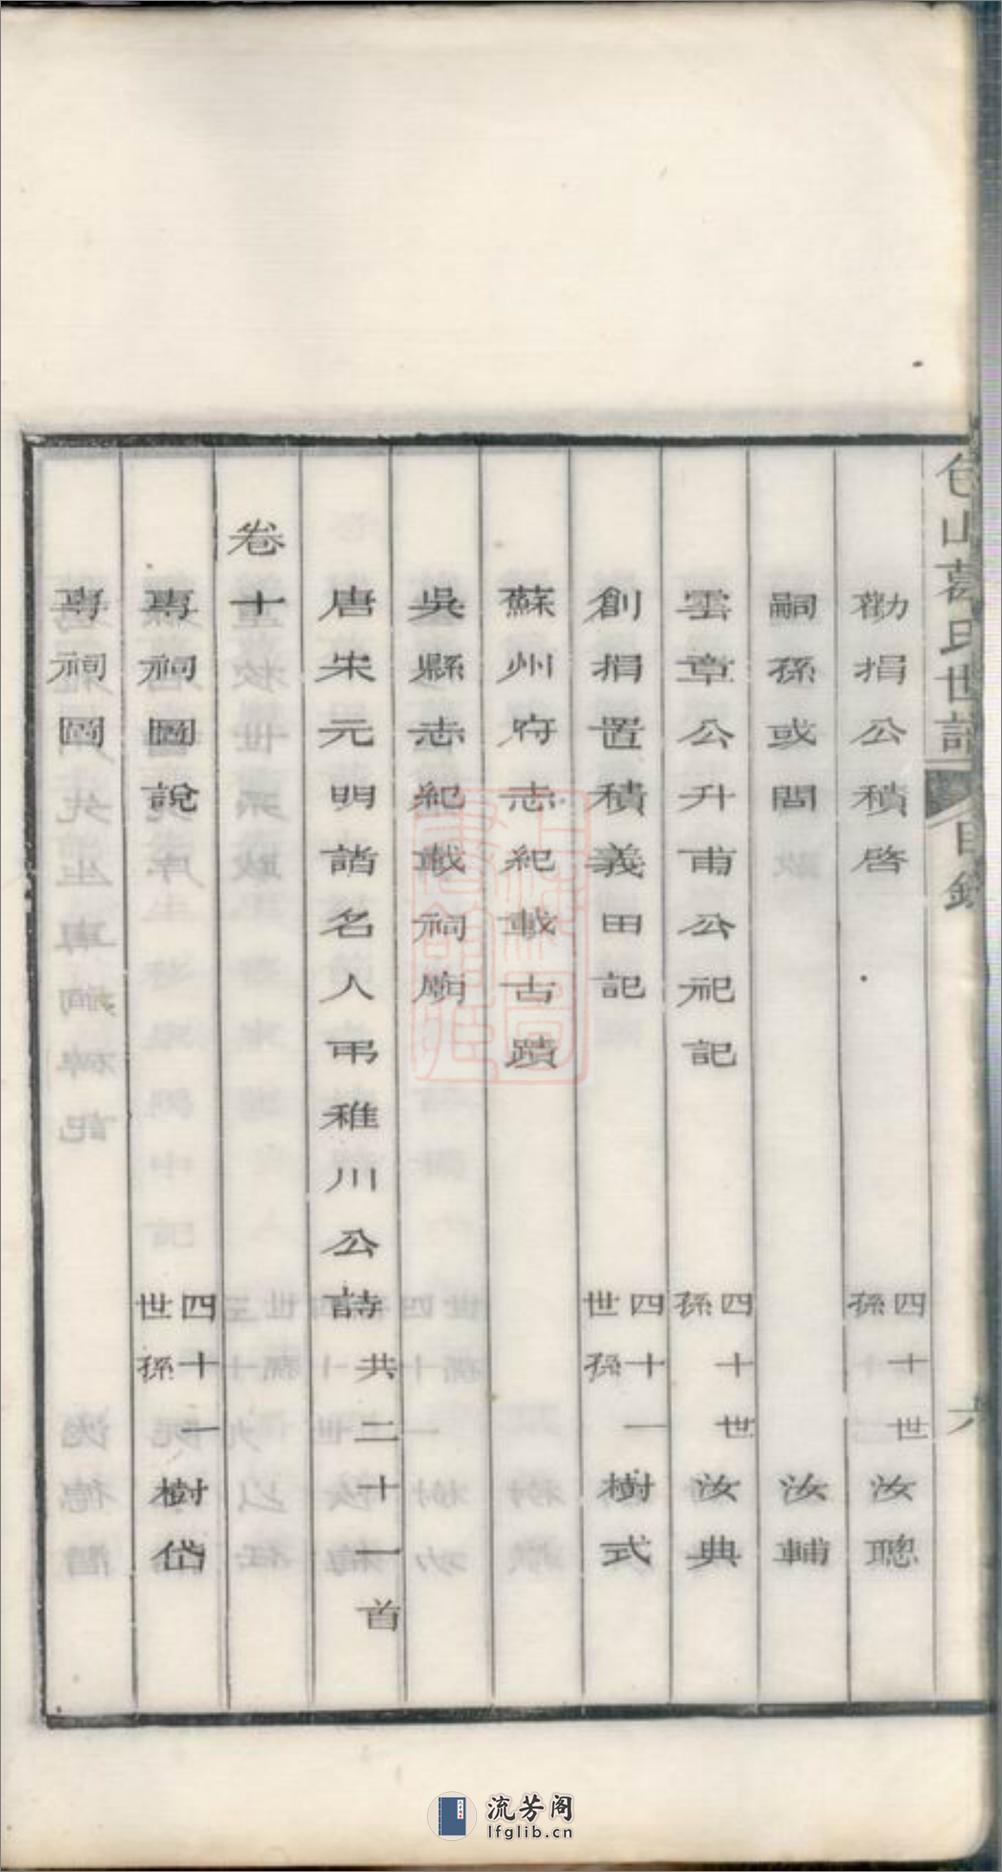 包山葛氏世譜 目錄 六
勸捐公積啓 四十世孫 汝聰
嗣孫或問 汝輔
雲章公升甫公祀記 四十世孫 汝典
創捐置積義田記 四十一世孫 樹式
蘇州府志紀載古蹟
吳縣志紀載祠廟
唐宋元明諸名人弔稚川公詩 共二十一首
卷十
專祠圖說 四十一世孫 樹岱
專祠圖
流芳阁
lfglib.cn